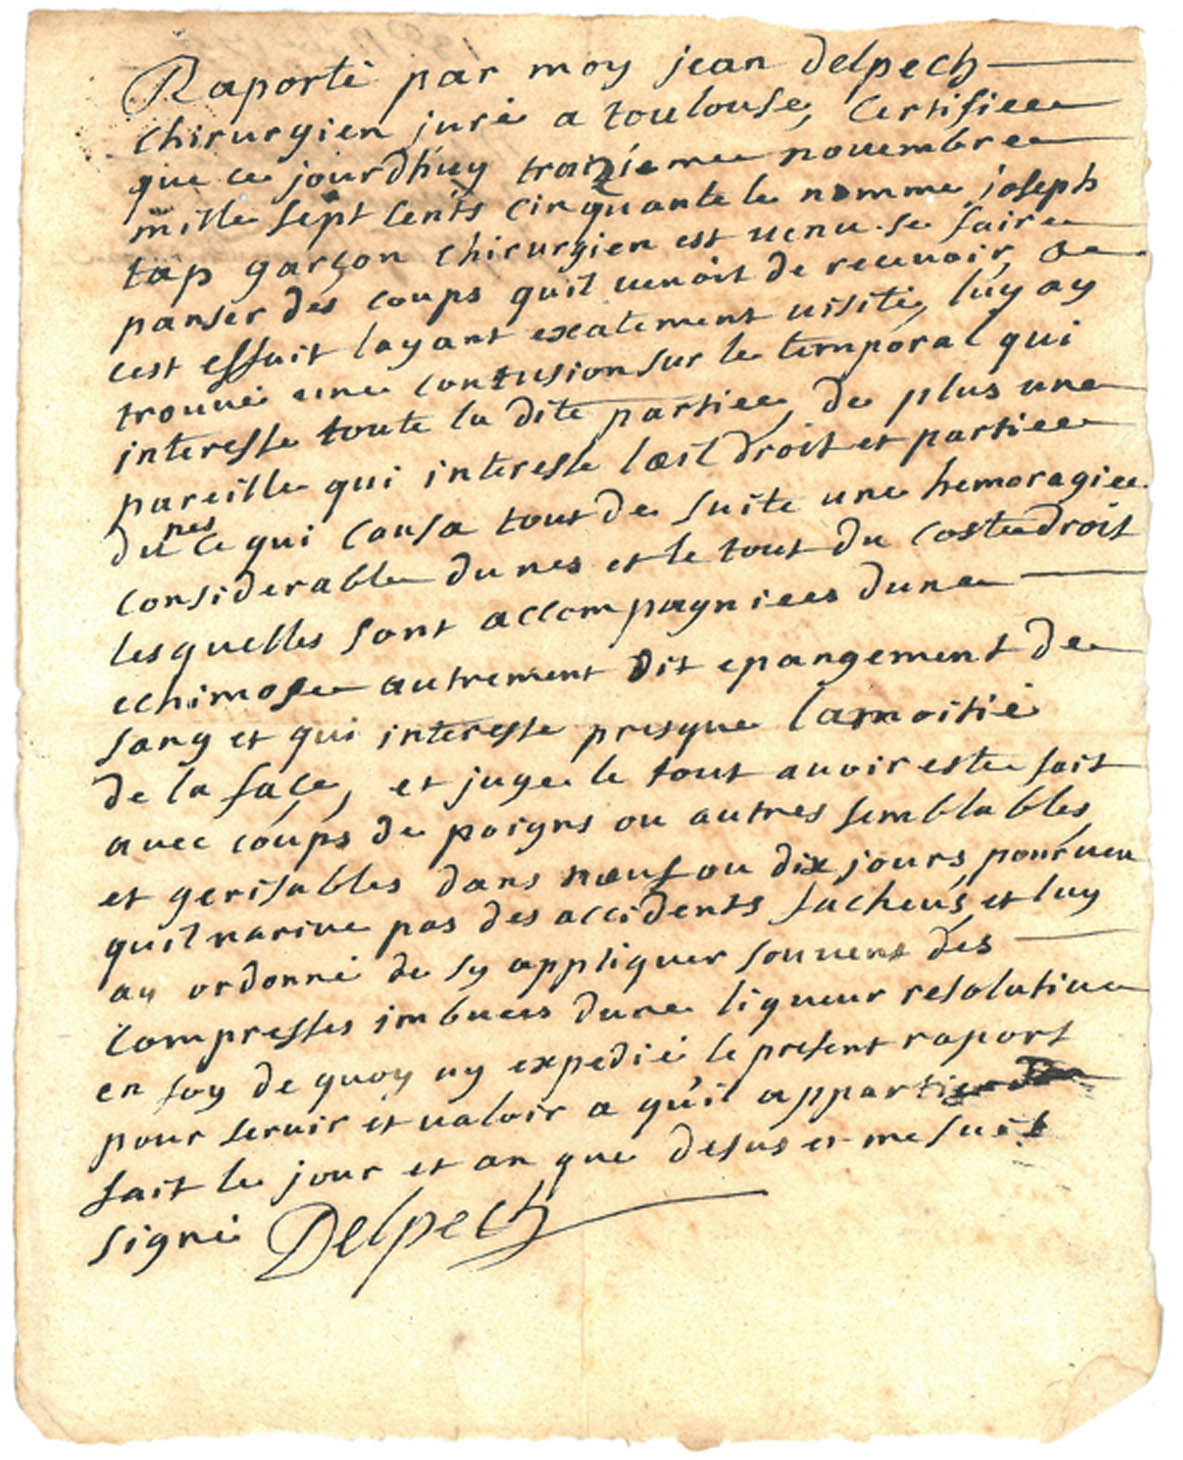 Raporté par moy jean Delpech
chirurgien juré a toulouse, Certifiee
que ce jourdhuy traizieme novembree
mille sept cents cinquante le nomme joseph
tap garçon chirurgien est venu se faire
panser des coups quil venoit de recevoir, a
cest effait layant exatement visité, luy ay
trouvé une contusion sur le temporal qui
interesse toute la dite partiee, de plus une
pareille qui interesse lœil droit et partiee
du nes ce qui causa tout de suite une hemoragiee
considerable du nes et le tout du coste droit
lesquelles sont accompagniees dune
echimose autrement dit epangement de
sang et qui interesse presque la moitié
de la face, et juge le tout avoir este fait
avec coups de poigns ou autres semblables
et gerisables dans nœuf ou dix jours, pourveu
quil narive pas des accidents facheus, et luy
ay ordonné de sy appliquer souvent des
compresses imbuees dune liqueur resolutive
en foy de quoy ay expedié le present raport
pour servir et valoir a quil appartiendra
fait le jour et an que desus et me suis
signé Delpech